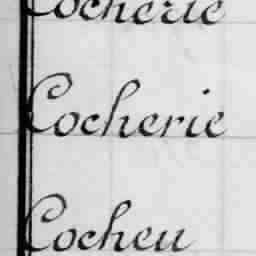 Cocherie
Cocherie
Cocheu